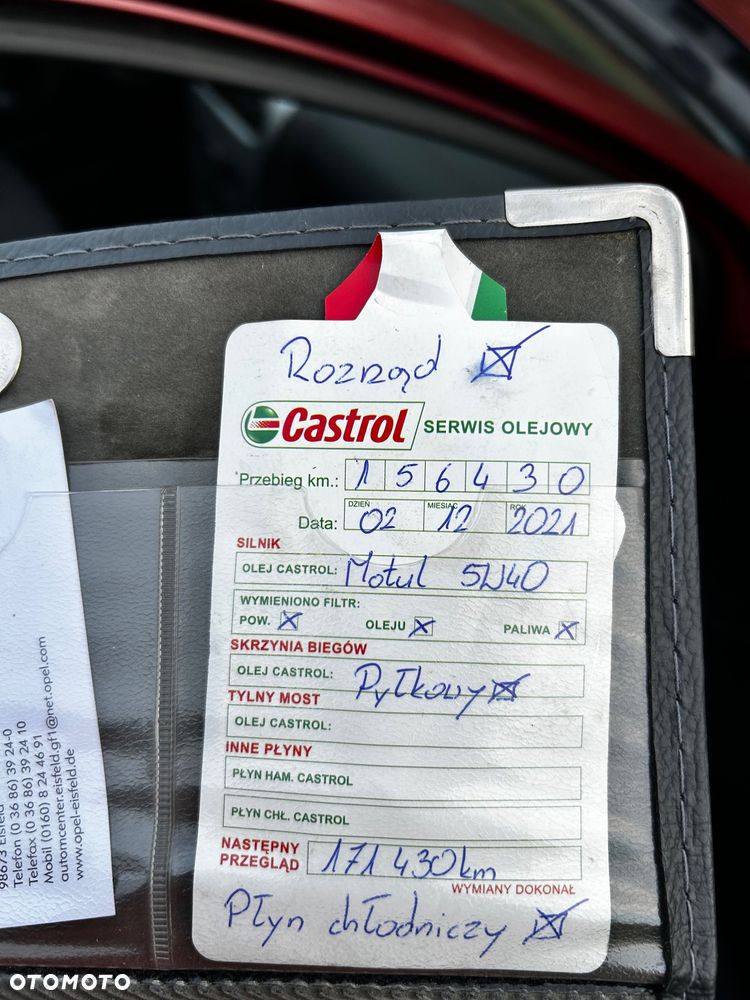 Rozrząd
Castrol SERWIS OLEJOWY
Przebieg km.: 1 5 6 4 3 0
DZIEŃ MIESIĄC ROK
Data: 02 12 2021
SILNIK
OLEJ CASTROL: Motul 5W40
WYMIENIONO FILTR:
POW. OLEJU PALIWA
SKRZYNIA BIEGÓW
OLEJ CASTROL: Pyłkowy
TYLNY MOST
OLEJ CASTROL:
INNE PŁYNY
PŁYN HAM. CASTROL
PŁYN CHŁ. CASTROL
NASTĘPNY PRZEGLĄD 171 430km
WYMIANY DOKONAŁ
Płyn chłodniczy
98673 Eisfeld
Telefon (0 36 86) 39 24-0
Telefax (0 36 86) 39 24 10
Mobil (0160) 8 24 46 91
automcenter.eisfeld.gf1@net.opel.com
www.opel-eisfeld.de
OTOMOTO